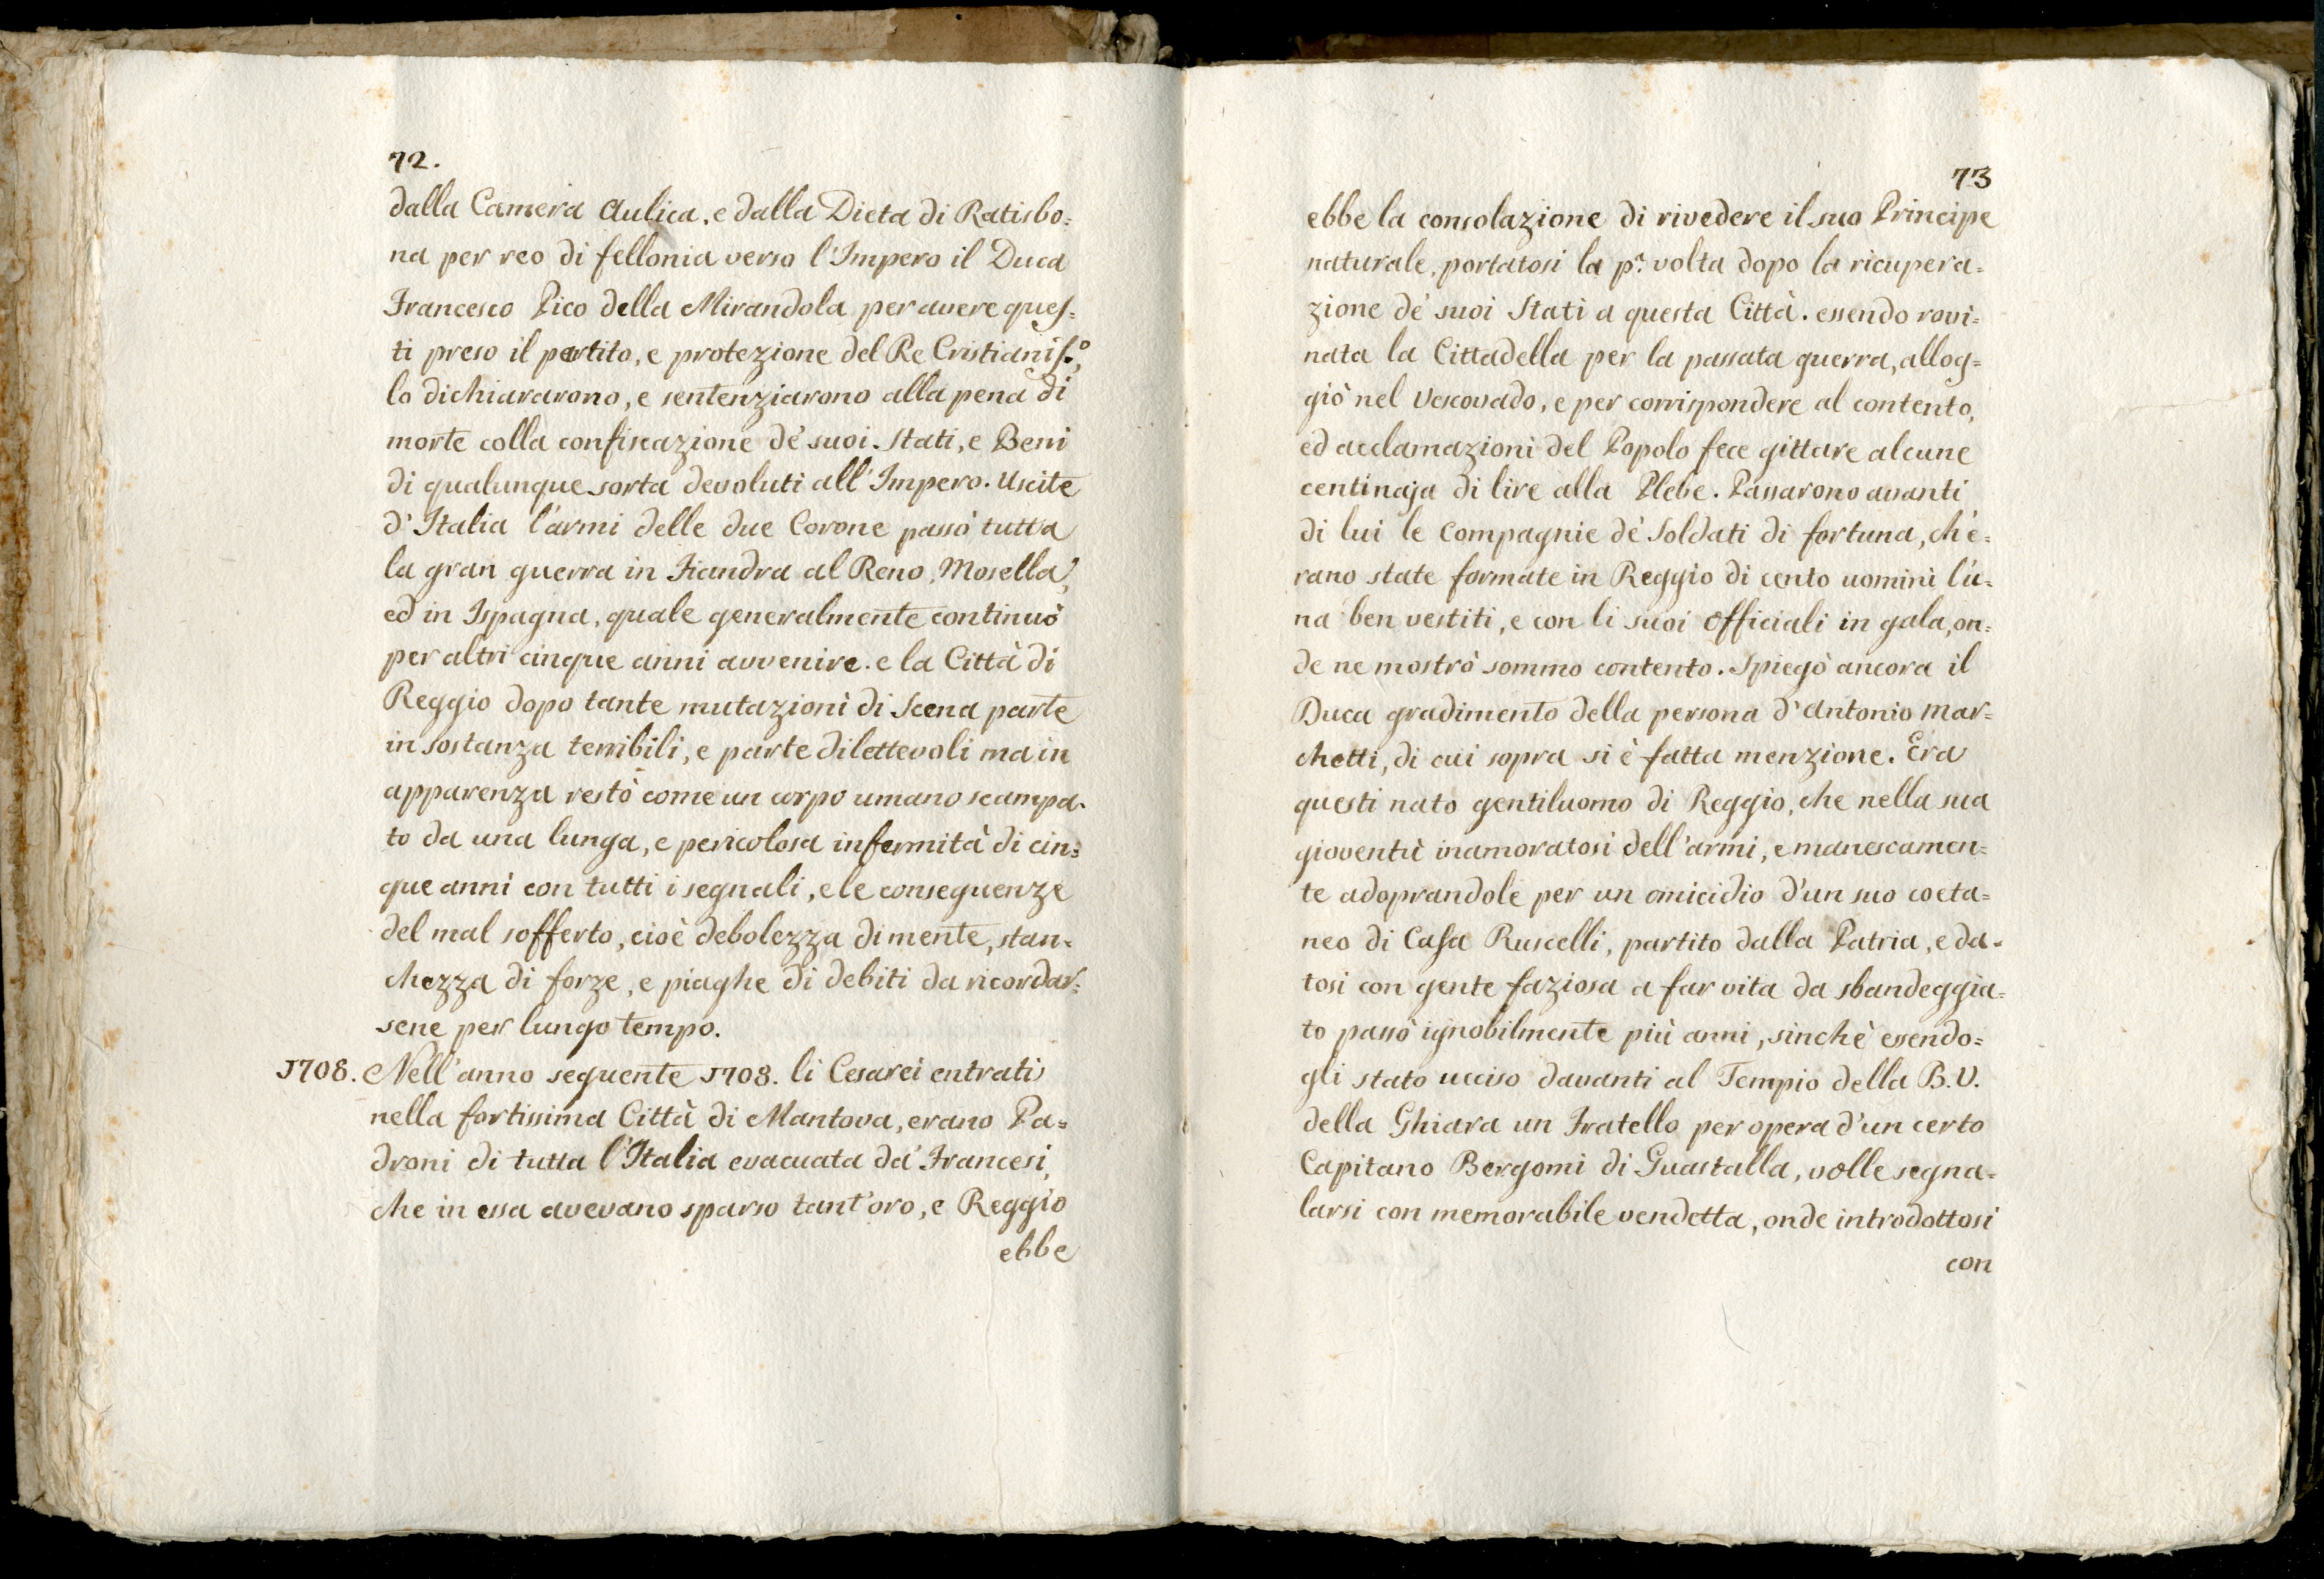 72.
dalla Camera Aulica, e dalla Dieta di Ratisbo=
na per reo di fellonia verso l'Impero il Duca
Francesco Pico della Mirandola per avere ques=
ti preso il partito, e protezione del Re Cristianis.º,
lo dichiararono, e sentenziarono alla pena di
morte colla confiscazione de' suoi Stati, e Beni
di qualunque sorta devoluti all'Impero. Uscite
d'Italia l'armi delle due Corone passò tutta
la gran guerra in Fiandra al Reno, Mosella,
ed in Ispagna, quale generalmente continuò
per altri cinque anni avvenire. e la Città di
Reggio dopo tante mutazioni di Scena parte
in sostanza terribili, e parte dilettevoli ma in
apparenza restò come un corpo umano scampa=
to da una lunga, e pericolosa infermità di cin=
que anni con tutti i segnali, e le conseguenze
del mal sofferto, cioè debolezza di mente, stan=
chezza di forze, e piaghe di debiti da ricordar=
sene per lungo tempo.
1708. Nell'anno seguente 1708. li Cesarei entrati
nella fortissima Città di Mantova, erano Pa=
droni di tutta l'Italia evacuata da' Francesi,
che in essa avevano sparso tant'oro, e Reggio
ebbe
73
ebbe la consolazione di rivedere il suo Principe
naturale, portatosi la pª. volta dopo la ricupera=
zione de' suoi Stati a questa Città. essendo rovi=
nata la Cittadella per la passata guerra, allog=
giò nel Vescovado, e per corrispondere al contento,
ed acclamazioni del Popolo fece gittare alcune
centinaja di lire alla Plebe. Passarono avanti
di lui le Compagnie de' Soldati di fortuna, ch'e=
rano state formate in Reggio di cento uomini l'u=
na ben vestiti, e con li suoi Officiali in gala, on=
de ne mostrò sommo contento. Spiegò ancora il
Duca gradimento della persona d'Antonio Mar=
chetti, di cui sopra si è fatta menzione. Era
questi nato gentiluomo di Reggio, che nella sua
gioventù inamoratosi dell'armi, e manescamen=
te adoprandole per un omicidio d'un suo coeta=
neo di Casa Ruscelli, partito dalla Patria, e da=
tosi con gente faziosa a far vita da sbandeggia=
to passò ignobilmente più anni, sinchè essendo=
gli stato ucciso davanti al Tempio della B.V.
della Ghiara un Fratello per opera d'un certo
Capitano Bergomi di Guastalla, volle segna=
larsi con memorabile vendetta, onde introdottosi
con